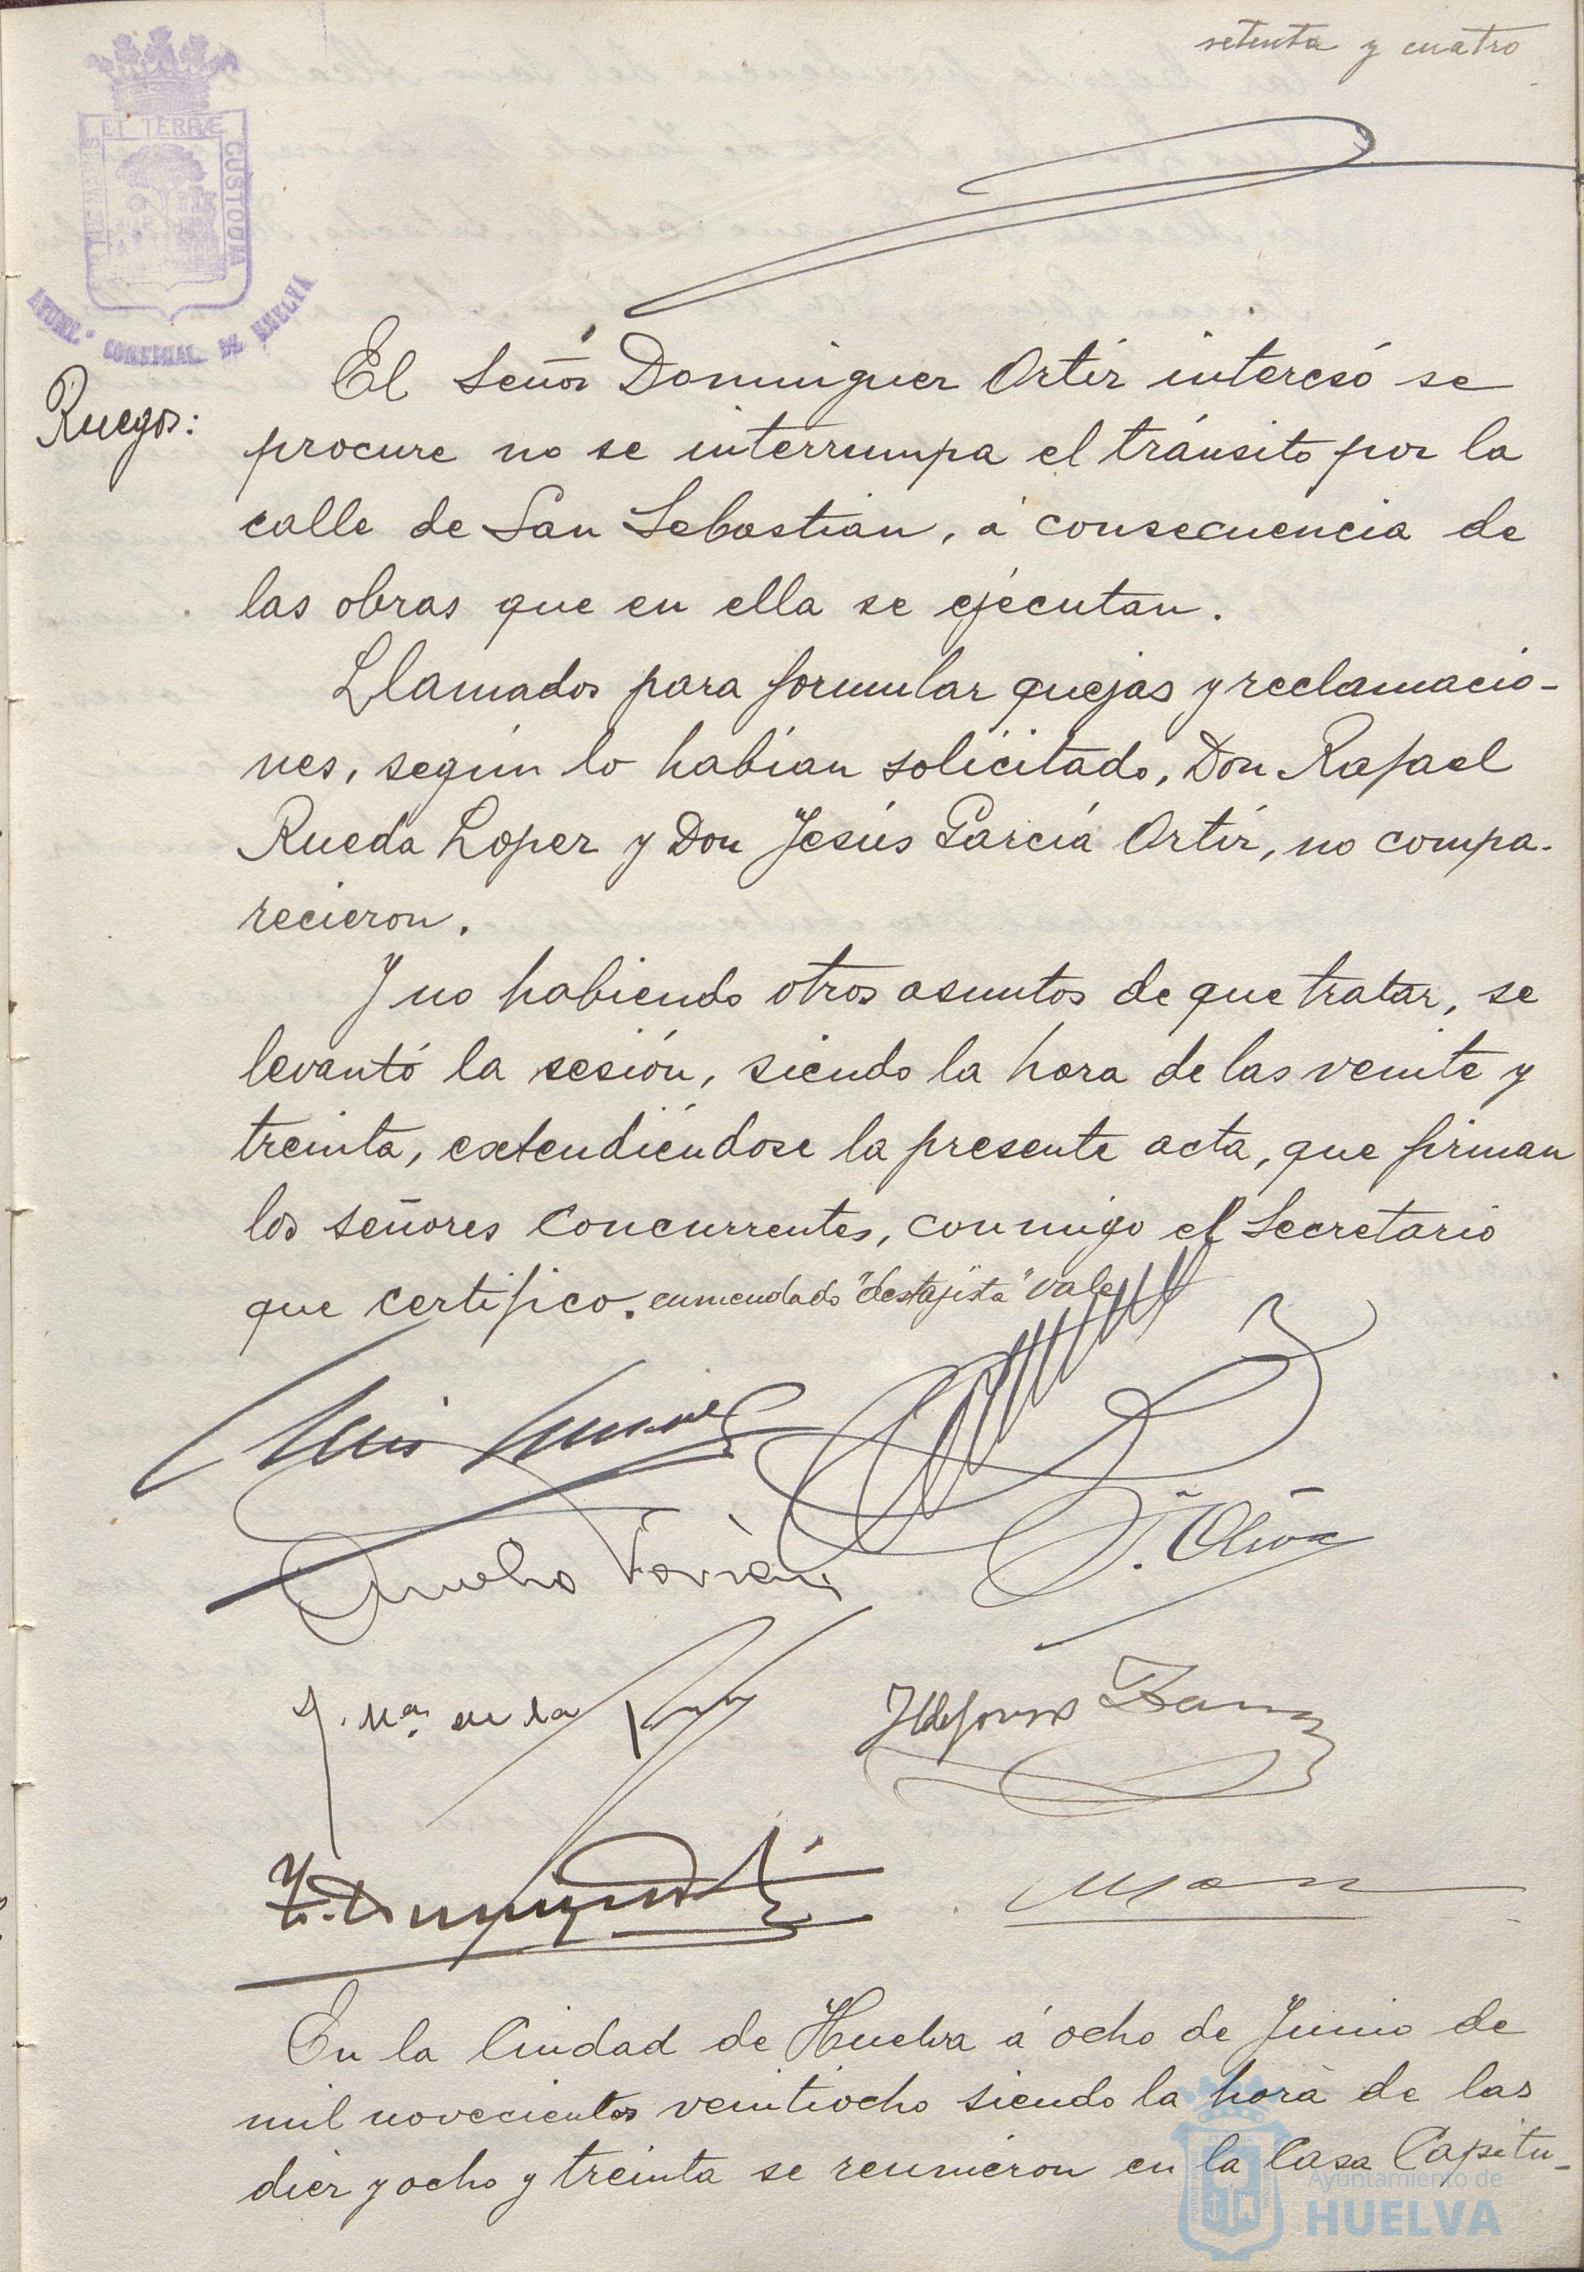 setenta y cuatro
ET TERRÆ
CUSTODIA
AYUNT.º CONSTNAL. DE HUELVA
Ruegos:
El Señor Dominguez Ortiz interesó se
procure no se interrumpa el tránsito por la
calle de San Sebastián, á consecuencia de
las obras que en ella se ejecutan.
Llamados para formular quejas y reclamacio-
nes, según lo habían solicitado, Don Rafael
Rueda Lopez y Don Jesús García Ortiz, no compa-
recieron.
Y no habiendo otros asuntos de que tratar, se
levantó la sesión, siendo la hora de las veinte y
treinta, extendiéndose la presente acta, que firman
los señores Concurrentes, conmigo el Secretario
que certifico. enmendado "destajista" vale
J. Oliva
J. Mª. de la
Ildefonso
En la Ciudad de Huelva á ocho de Junio de
mil novecientos veintiocho siendo la hora de las
diez y ocho y treinta se reunieron en la Casa Capitu-
Ayuntamiento de
HUELVA